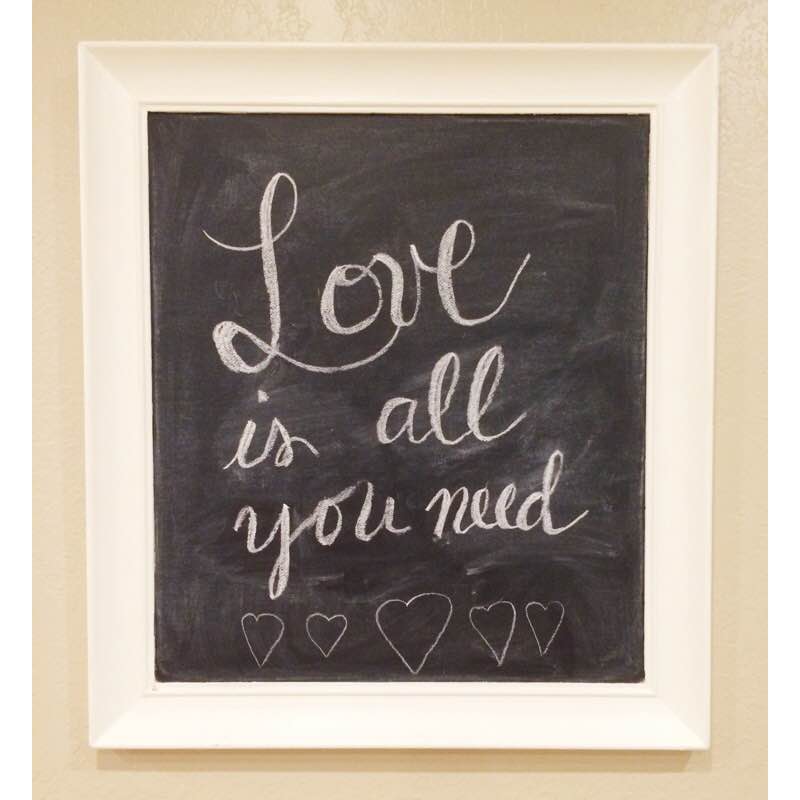 Love
is all
you need